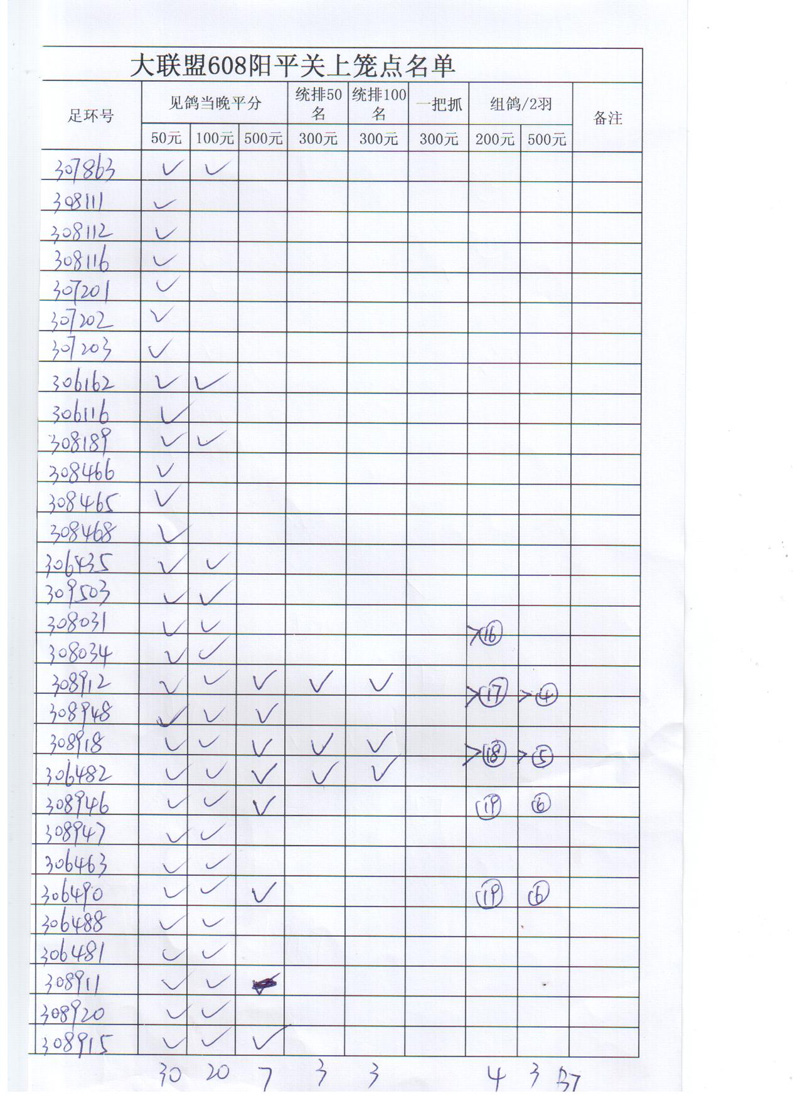 大联盟608阳平关上笼点名单
足环号 见鸽当晚平分 统排50名 统排100名 一把抓 组鸽/2羽 备注
50元 100元 500元 300元 300元 300元 200元 500元
307863 ✓ ✓
308111 ✓
308112 ✓
308116 ✓
307201 ✓
307202 ✓
307203 ✓
306162 ✓ ✓
306116 ✓
308189 ✓ ✓
308466 ✓
308465 ✓
308468 ✓
306435 ✓ ✓
309503 ✓ ✓
308031 ✓ ✓ >⑯
308034 ✓ ✓
308912 ✓ ✓ ✓ ✓ ✓ >⑰ >④
308948 ✓ ✓ ✓
308918 ✓ ✓ ✓ ✓ ✓ >⑱ >⑤
306482 ✓ ✓ ✓ ✓ ✓
308946 ✓ ✓ ✓ ⑲ ⑥
308947 ✓ ✓
306463 ✓ ✓
306490 ✓ ✓ ✓ ⑲ ⑥
306488 ✓ ✓
306481 ✓ ✓
308911 ✓ ✓
308920 ✓ ✓
308915 ✓ ✓ ✓
30 20 7 3 3 4 3